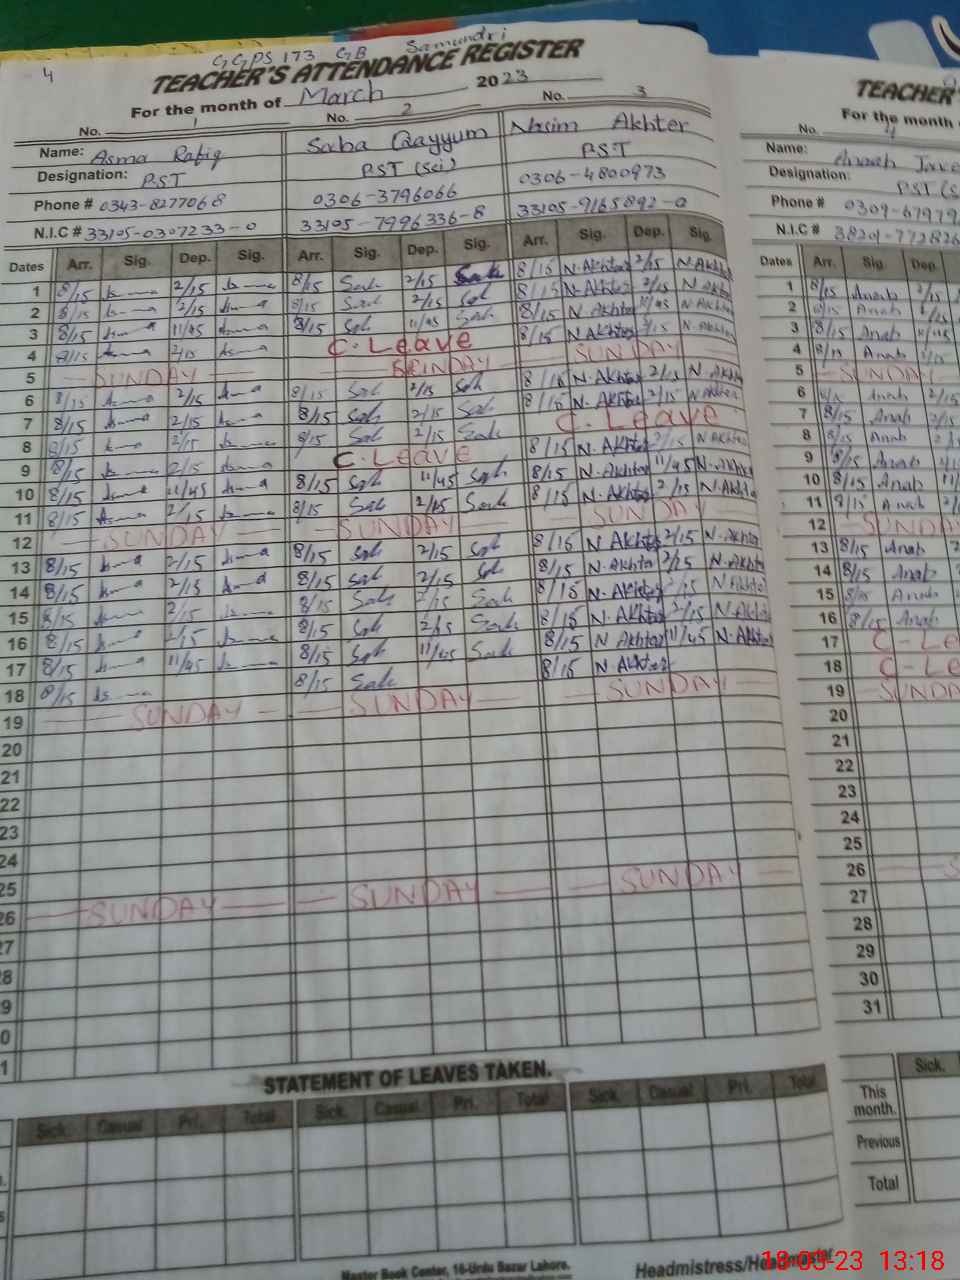 4 GGPS 173 GB Samundri
TEACHER'S ATTENDANCE REGISTER
For the month of March 2023
No. 1 No. 2 No. 3
Name: Asma Rafiq Saba Qayyum Nasim Akhter
Designation: PST PST (Sci) PST
Phone # 0343-8277068 0306-3796066 0306-4800973
N.I.C # 33105-0307233-0 33105-7996336-8 33105-9165892-0
Dates Arr. Sig. Dep. Sig. Arr. Sig. Dep. Sig. Arr. Sig. Dep. Sig.
1 8/15 Asma 2/15 Asma 8/15 Sab 2/15 Sab 8/15 N.Akhter 2/15 N.Akhter
2 8/15 Asma 2/15 Asma 8/15 Sab 2/15 Sab 8/15 N.Akhter 2/15 N.Akhter
3 8/15 Asma 11/45 Asma 8/15 Sab 11/45 Sab 8/15 N.Akhter 11/45 N.Akhter
4 8/15 Asma 2/15 Asma C. Leave 8/15 N.Akhter 2/15 N.Akhter
5 SUNDAY SUNDAY SUNDAY
6 8/15 Asma 2/15 Asma 8/15 Sab 2/15 Sab 8/15 N.Akhter 2/15 N.Akhter
7 8/15 Asma 2/15 Asma 8/15 Sab 2/15 Sab 8/15 N.Akhter 2/15 N.Akhter
8 8/15 Asma 2/15 Asma 8/15 Sab 2/15 Sab C. Leave
9 8/15 Asma 2/15 Asma C. Leave 8/15 N.Akhter 2/15 N.Akhter
10 8/15 Asma 11/45 Asma 8/15 Sab 11/45 Sab 8/15 N.Akhter 11/45 N.Akhter
11 8/15 Asma 2/15 Asma 8/15 Sab 2/15 Sab 8/15 N.Akhter 2/15 N.Akhter
12 SUNDAY SUNDAY SUNDAY
13 8/15 Asma 2/15 Asma 8/15 Sab 2/15 Sab 8/15 N Akhter 2/15 N.Akhter
14 8/15 Asma 2/15 Asma 8/15 Sab 2/15 Sab 8/15 N.Akhter 2/15 N.Akhter
15 8/15 Asma 2/15 Asma 8/15 Sab 2/15 Sab 8/15 N.Akhter 2/15 N.Akhter
16 8/15 Asma 2/15 Asma 8/15 Sab 2/15 Sab 8/15 N.Akhter 2/15 N.Akhter
17 8/15 Asma 11/45 Asma 8/15 Sab 11/45 Sab 8/15 N Akhter 11/45 N.Akhter
18 8/15 Asma 8/15 Sab 8/15 N.Akhter
19 SUNDAY SUNDAY SUNDAY
20
21
22
23
24
25
26 SUNDAY SUNDAY SUNDAY
27
8
9
0
1
STATEMENT OF LEAVES TAKEN.
Sick. Casual Pri. Total Sick. Casual Pri. Total Sick. Casual Pri. Total
Master Book Center, 16-Urdu Bazar Lahore.
Headmistress/Headmaster
TEACHER'
For the month
No. 4
Name: Anab
Designation: PST
Phone # 0309-
N.I.C # 38201-
Dates Arr. Sig. Dep.
1 8/15 Anab 2/15
2 8/15 Anab 2/15
3 8/15 Anab 11/45
4 8/15 Anab 2/15
5 SUNDA
6 8/15 Anab 2/15
7 8/15 Anab 2/15
8 8/15 Anab
9 8/15 Anab
10 8/15 Anab
11 8/15 Anab 2/15
12 SUNDA
13 8/15 Anab
14 8/15 Anab
15 8/15 Anab
16 8/15 Anab
17 C-Le
18 C-Le
19 SUNDA
20
21
22
23
24
25
26 S
27
28
29
30
31
Sick.
This month.
Previous
Total
18-03-23 13:18